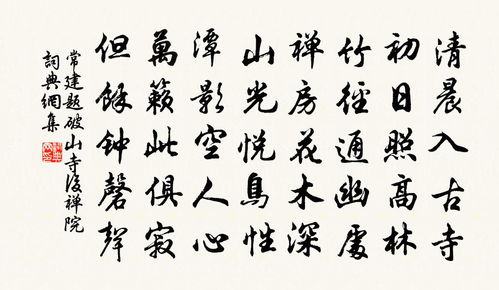 清晨入古寺
初日照高林
竹徑通幽處
禪房花木深
山光悅鳥性
潭影空人心
萬籟此俱寂
但餘鐘磬聲
常建題破山寺後禪院
詞典網集